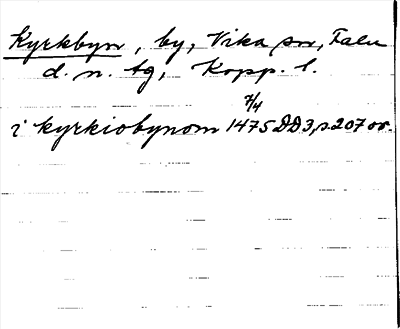 Kyrkbyn, by, Vika sn, Falu
d. n. tg, Kopp. l.
i kyrkiobynom 1475 7/4 DD3, s. 207 or.